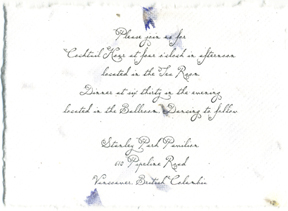 Please join us for
Cocktail Hour at four o'clock in afternoon
located in the Tea Room
Dinner at six thirty in the evening
located in the Ballroom. Dancing to follow
Stanley Park Pavilion
610 Pipeline Road
Vancouver British Columbia